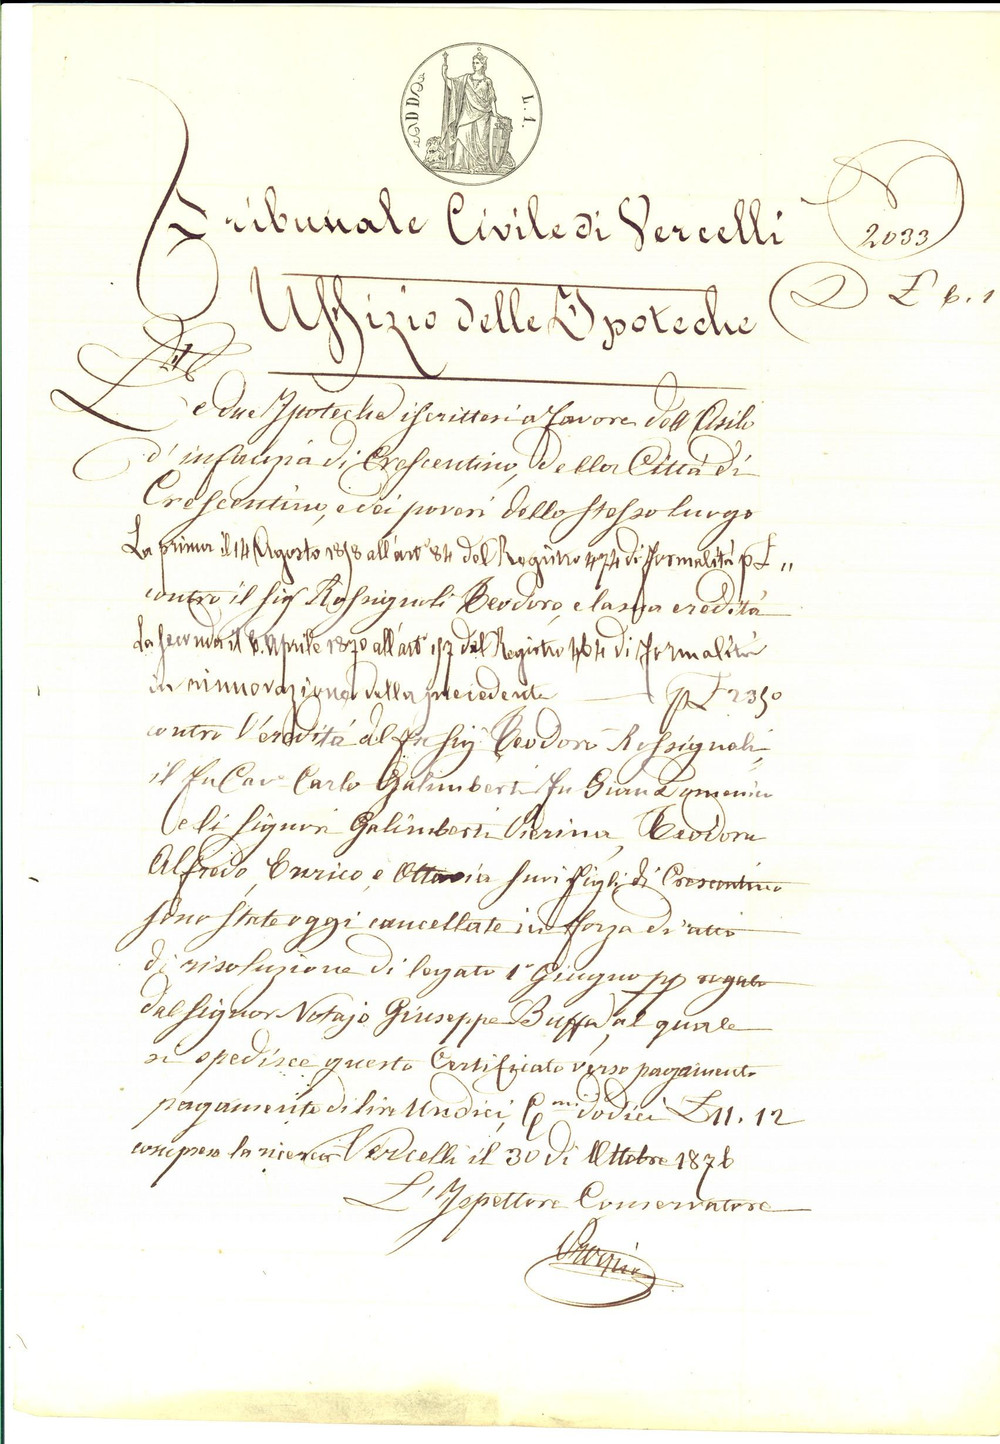 L. 1.
Tribunale Civile di Vercelli
2033
Uffizio delle Ipoteche
£ 6. 1
Le due Ipoteche iscrittesi a favore dell'Asilo
d'infanzia di Crescentino, della Città di
Crescentino, e dei poveri dello stesso luogo
La prima il 14 Agosto 1858 all'art° 84 del Registro 474 di formalità p £ "
contro il sig Rossignoli Teodoro, e la sua eredità
La seconda il 6. Aprile 1870 all'art° 157 del Registro 464 di formalità
in rinnovazione della precedente p £ 2350
contro l'eredità del fu sig Teodoro Rossignoli,
il fu Cav° Carlo Galimberti fu Gian Domenico
e li Signori Galimberti Pierina, Teodoro
Alfredo, Enrico, e Ottavia suoi figli di Crescentino
sono state oggi cancellate in forza di atto
di risoluzione di legato 1° Giugno pp rogato
dal Signor Notajo Giuseppe Buffa, al quale
si spedisce questo Certificato verso pagamento
pagamento di lire Undici, C.mi dodici £ 11. 12
compreso la ricerca Vercelli il 30 di Ottobre 1876
L'Ispettore Conservatore